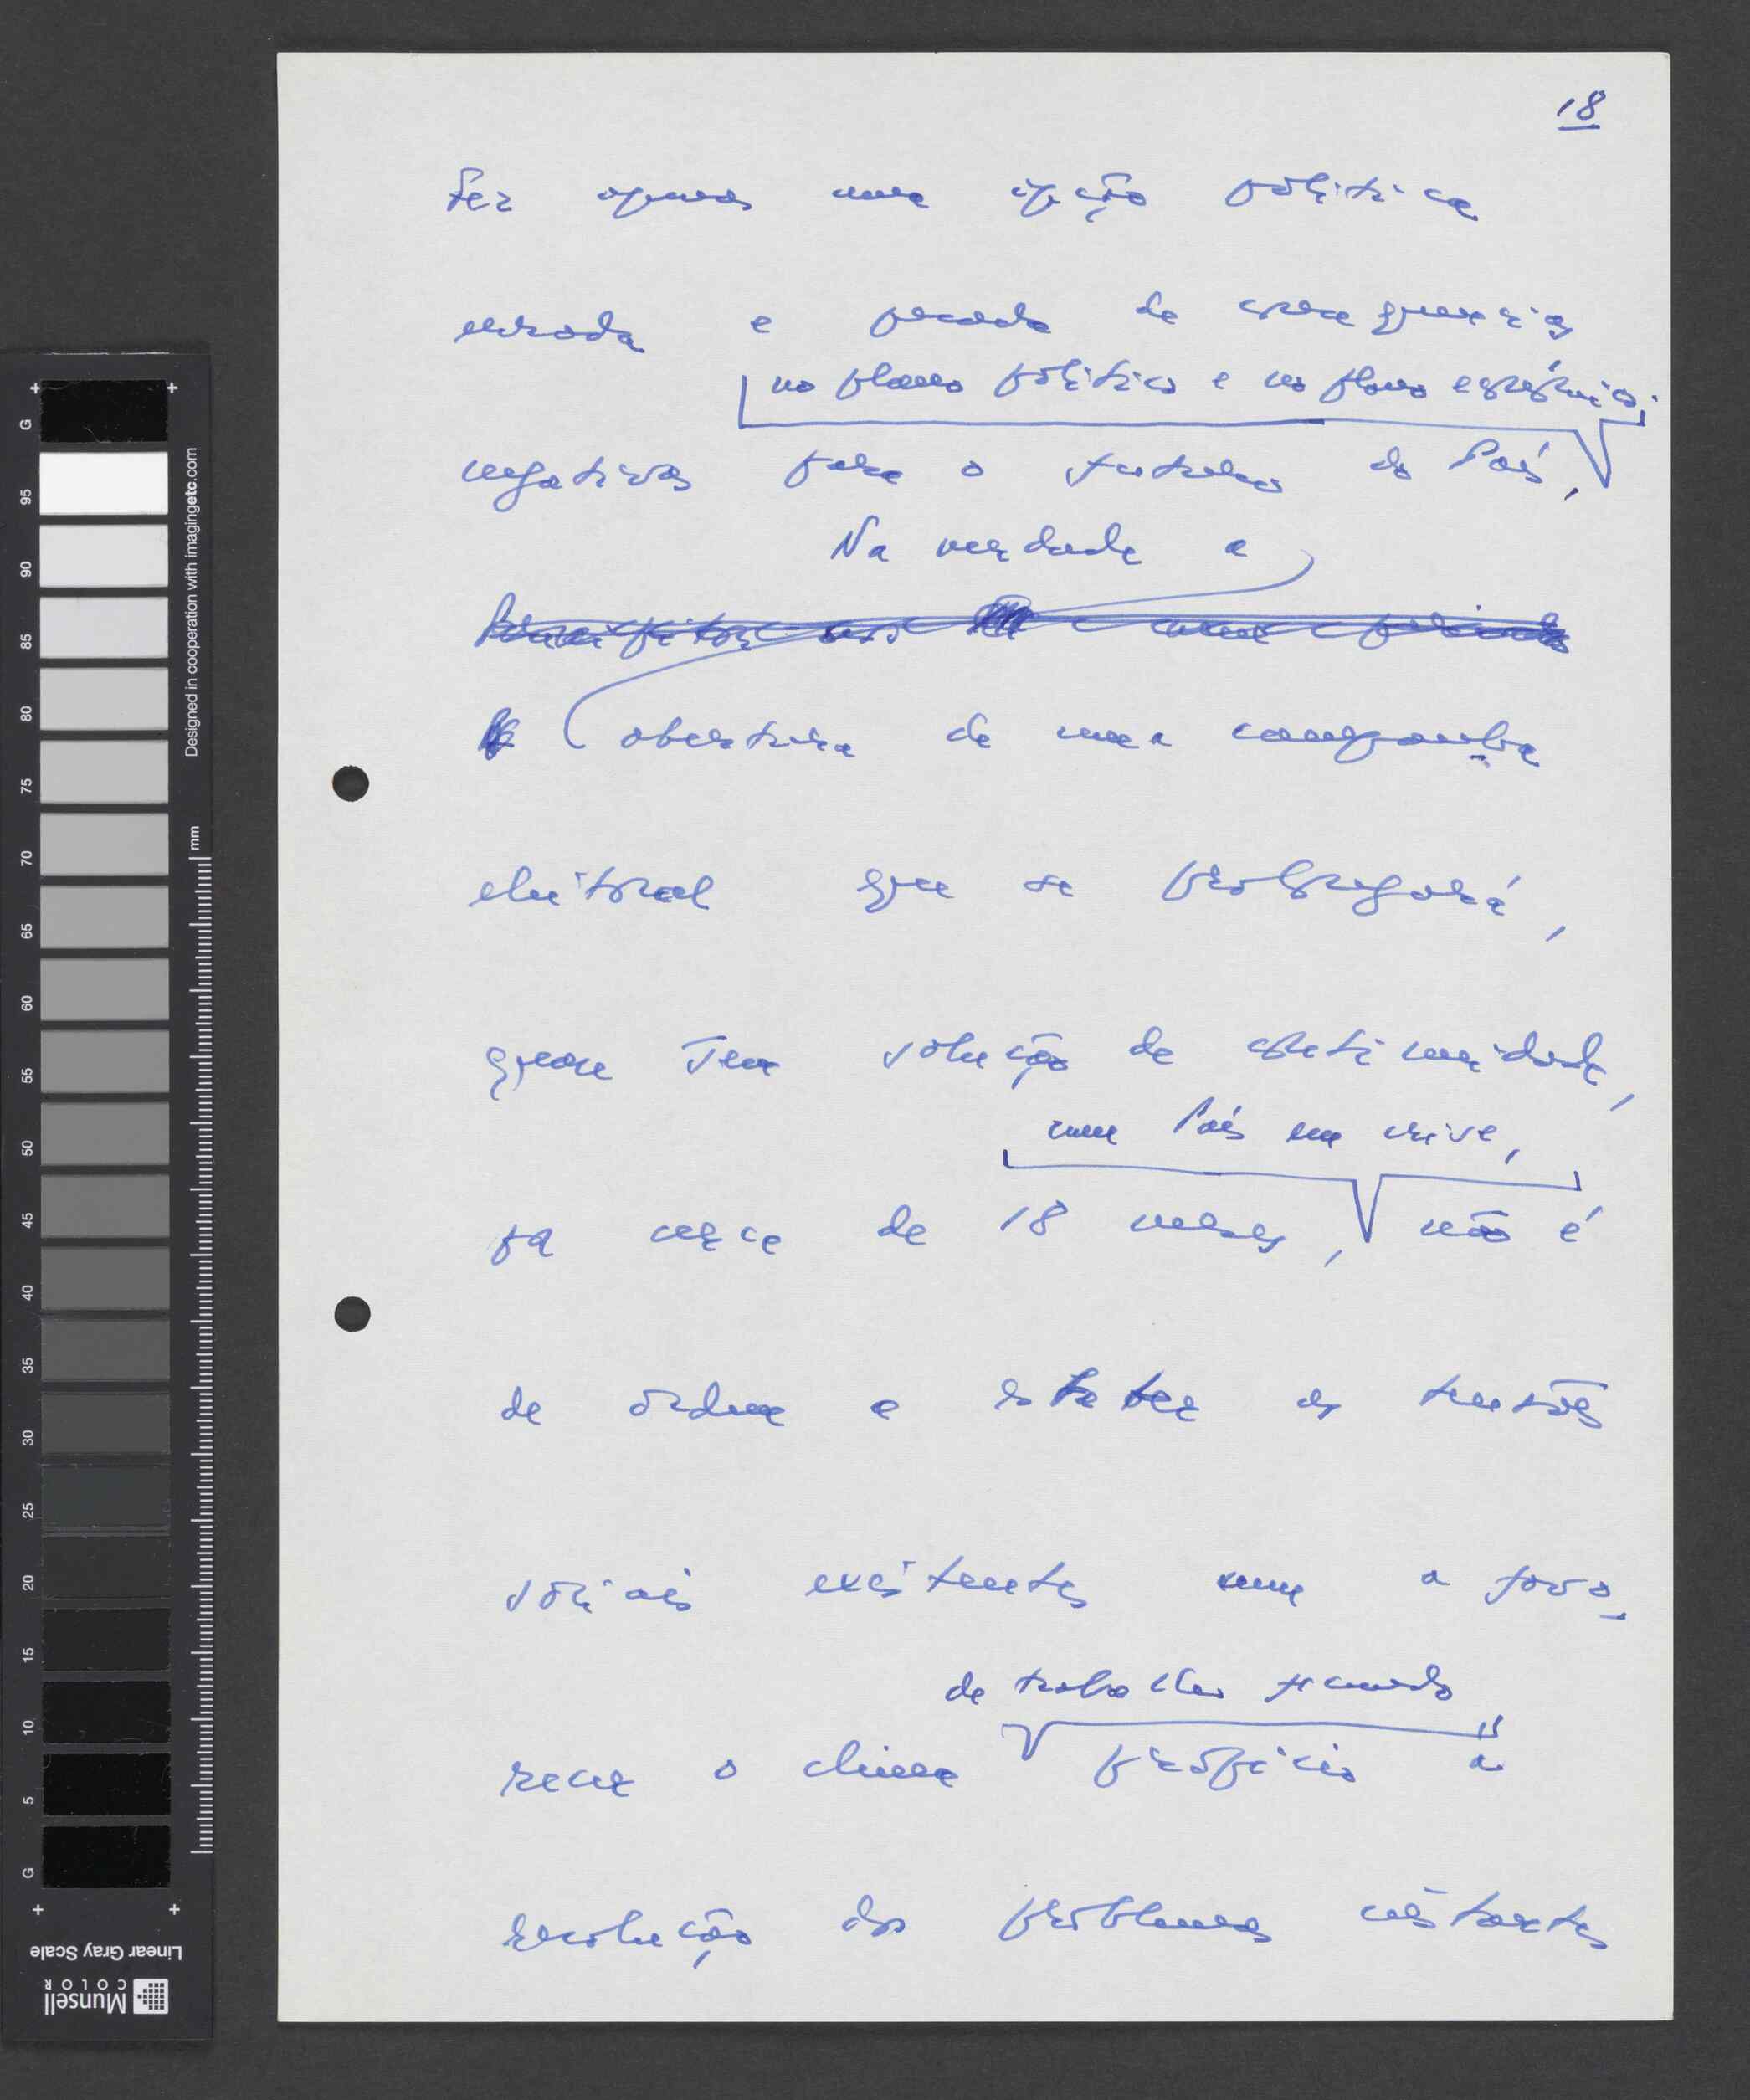 18
ser apenas uma opção política
errada e pesada de consequências
no plano político e no plano económico.
negativas para o futuro do País,
Na verdade a
abertura de uma campanha
eleitoral que se prolongará,
quase sem solução de continuidade,
num País em crise,
por cerca de 18 meses, não é
de ordem a esbater as tensões
sociais existentes nem a favo-
de trabalho fecundo
recer o clima propício à
resolução dos problemas instantes
G
95
90
85
80
75
70
65
60
55
50
45
40
35
30
25
20
15
10
5
G
mm
Designed in cooperation with imagingetc.com
Linear Gray Scale
Munsell
COLOR